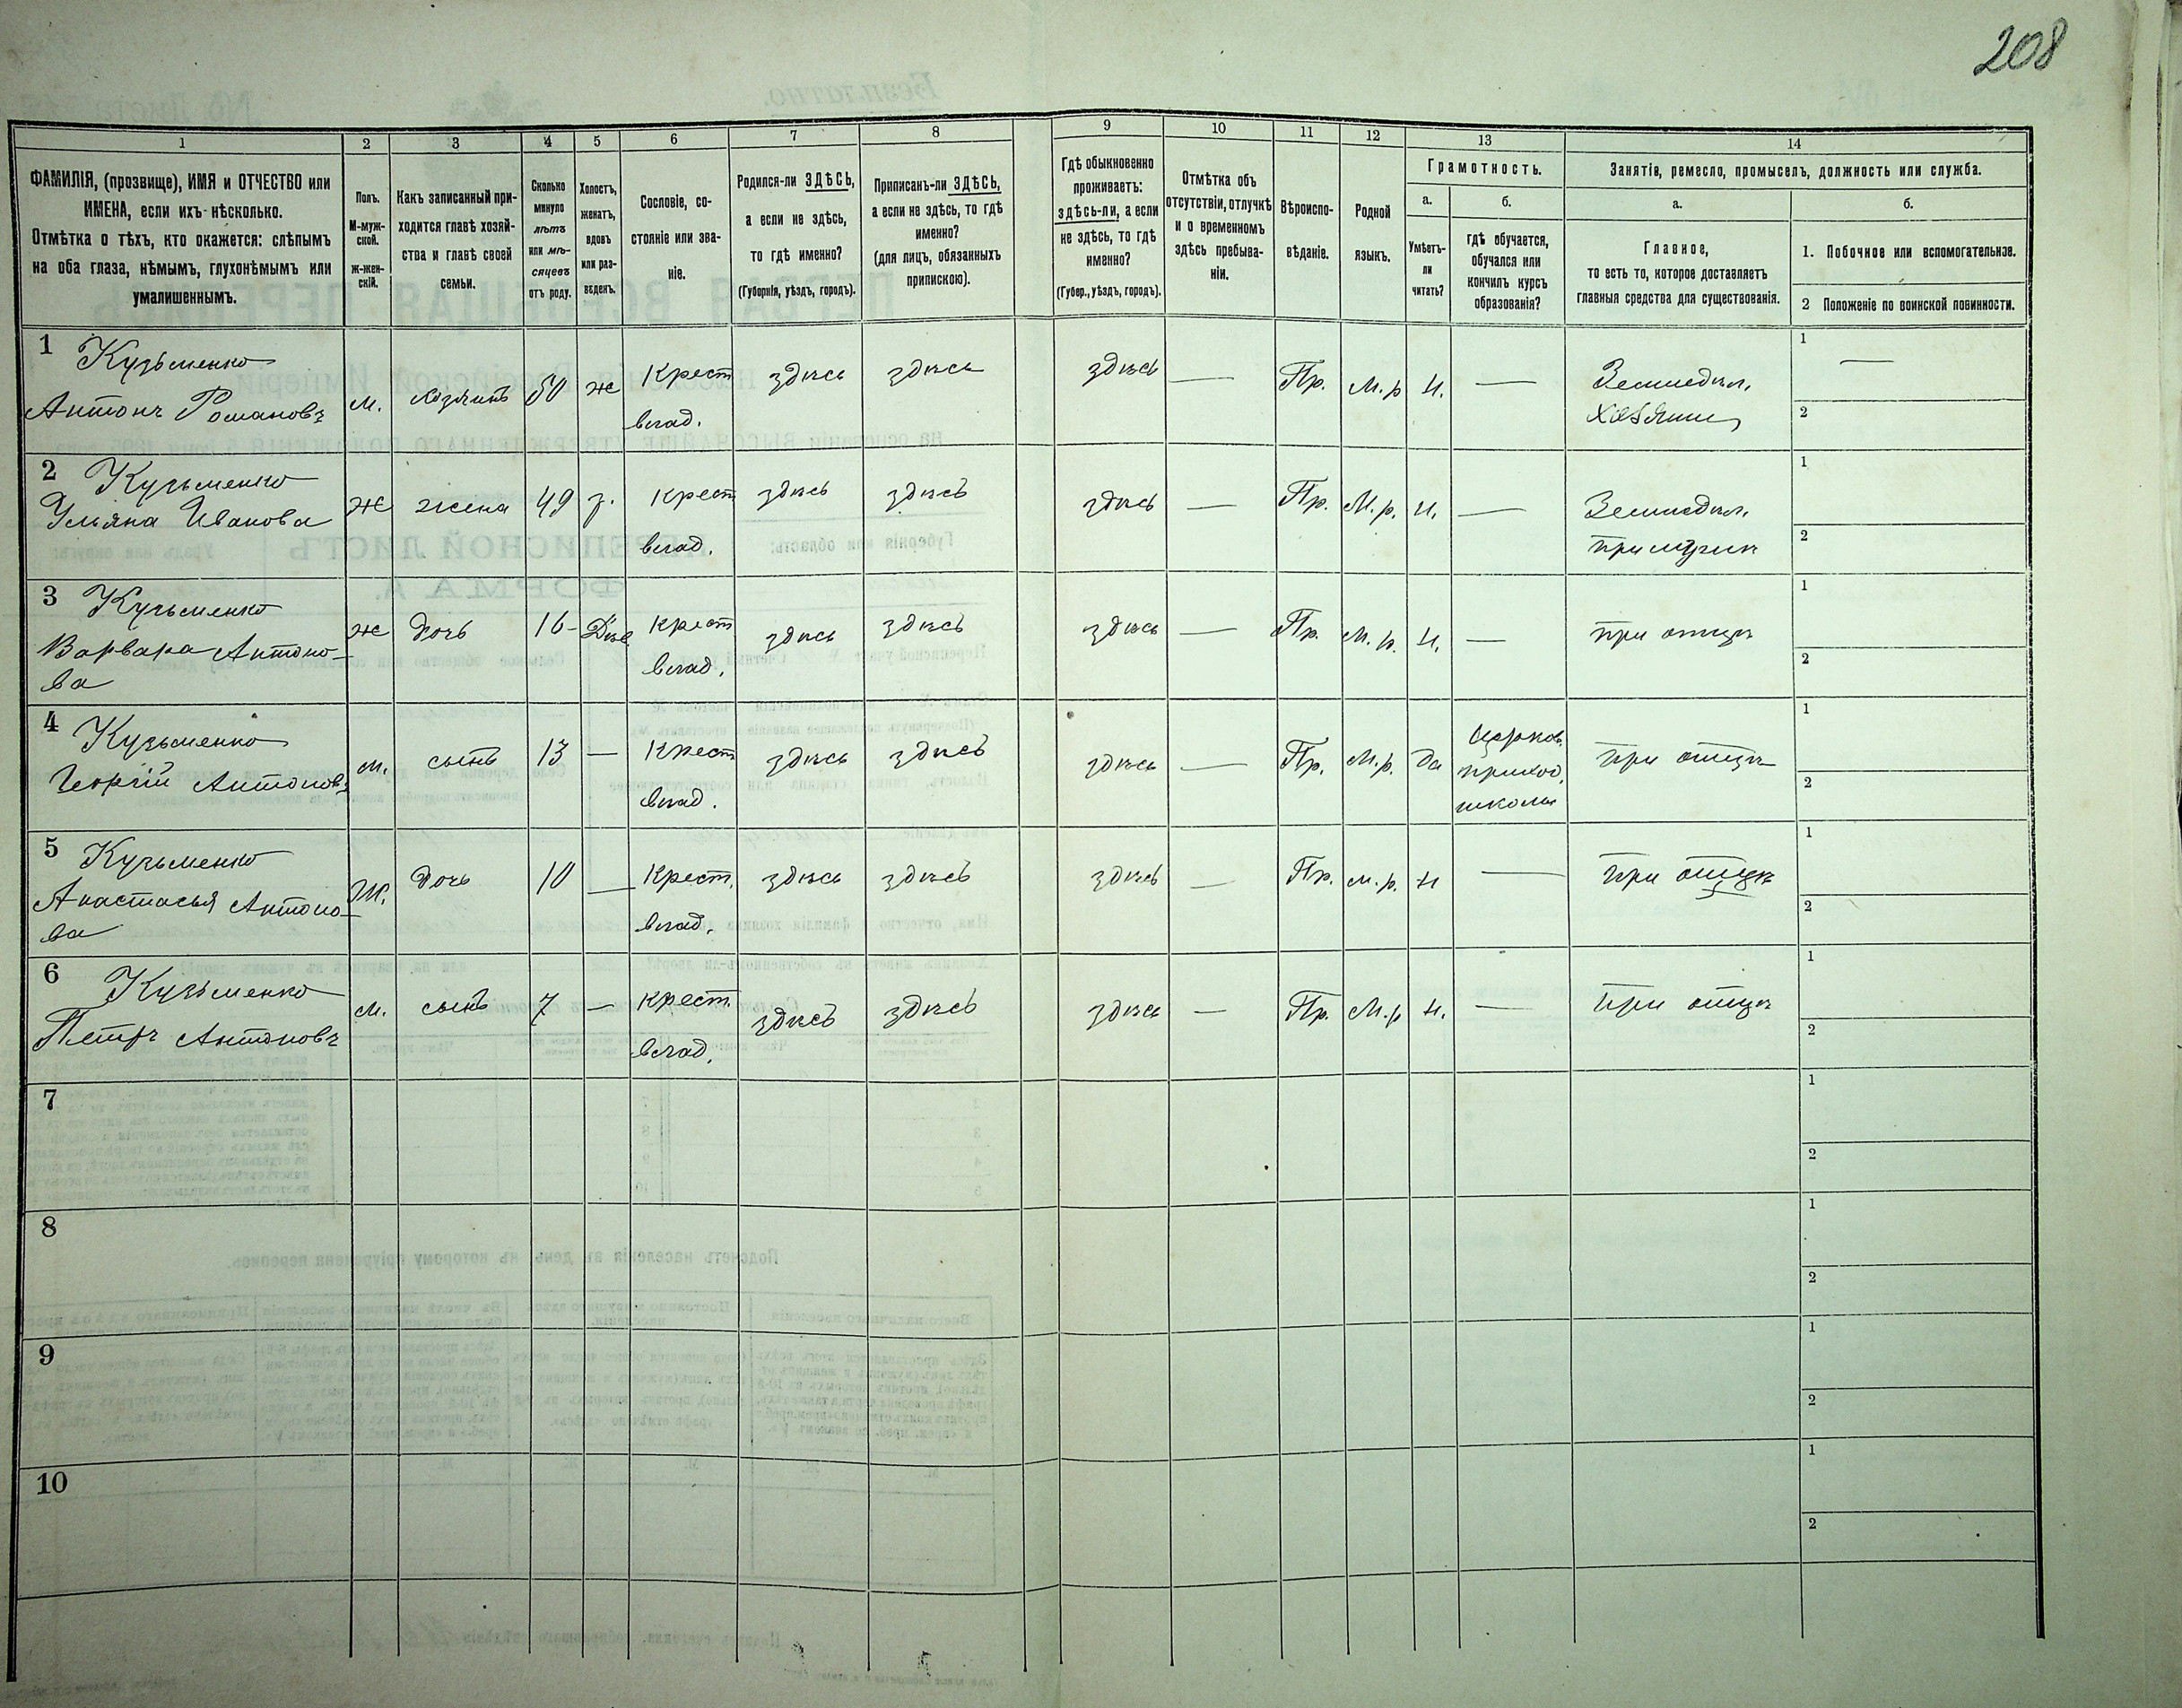 208
1 2 3 4 5 6 7 8 9 10 11 12 13 14
ФАМИЛІЯ, (прозвище), ИМЯ и ОТЧЕСТВО или
ИМЕНА, если ихъ нѣсколько.
Отмѣтка о тѣхъ, кто окажется: слѣпымъ
на оба глаза, нѣмымъ, глухонѣмымъ или
умалишеннымъ.
Полъ.
М-муж-
ской.
ж-жен-
скій.
Какъ записанный при-
ходится главѣ хозяй-
ства и главѣ своей
семьи.
Сколько
минуло
лѣтъ
или мѣ-
сяцевъ
отъ роду.
Холостъ,
женатъ,
вдовъ
или раз-
веденъ.
Сословіе, со-
стояніе или зва-
ніе.
Родился-ли ЗДѢСЬ,
а если не здѣсь,
то гдѣ именно?
(Губернія, уѣздъ, городъ).
Приписанъ-ли ЗДѢСЬ,
а если не здѣсь, то гдѣ
именно?
(для лицъ, обязанныхъ
припискою).
Гдѣ обыкновенно
проживаетъ:
здѣсь-ли, а если
не здѣсь, то гдѣ
именно?
(Губер., уѣздъ, городъ).
Отмѣтка объ
отсутствіи, отлучкѣ
и о временномъ
здѣсь пребыва-
ніи.
Вѣроиспо-
вѣданіе.
Родной
языкъ.
Грамотность.
а.
Умѣетъ-
ли
читать?
б.
гдѣ обучается,
обучался или
кончилъ курсъ
образованія?
Занятіе, ремесло, промыселъ, должность или служба.
а.
Главное,
то есть то, которое доставляетъ
главныя средства для существованія.
б.
1. Побочное или вспомогательное.
2 Положеніе по воинской повинности.
1 Кузьменко
Антонъ Романовъ
м. хозяинъ 50 ж Крест
влад.
здѣсь здѣсь здѣсь — Пр. М.р Н. —
Земледѣл.
хозяинъ
1 —
2
2 Кузьменко
Ульяна Иванова
Ж жена 49 з. Крест
влад.
здѣсь здѣсь здѣсь — Пр. М.р. Н. —
Земледѣл.
при мужѣ
1
2
3 Кузьменко
Варвара Антоно-
ва
ж дочь 16 - Дѣв. Крест
влад.
здѣсь здѣсь здѣсь — Пр. М.р. Н. — при отцѣ
1
2
4 Кузьменко
Георгій Антоновъ
м. сынъ 13 — Крест
влад.
здѣсь здѣсь здѣсь — Пр. М.р. да
Церков.
приход.
школы
при отцѣ
1
2
5 Кузьменко
Анастасья Антоно-
ва
Ж. дочь 10 — Крест.
влад.
здѣсь здѣсь здѣсь — Пр. М.р. Н — при отцѣ
1
2
6 Кузьменко
Петръ Антоновъ
м. сынъ 7 — Крест
влад.
здѣсь здѣсь здѣсь — Пр. М.р Н. — при отцѣ
1
2
7
1
2
8
1
2
9
1
2
10
1
2